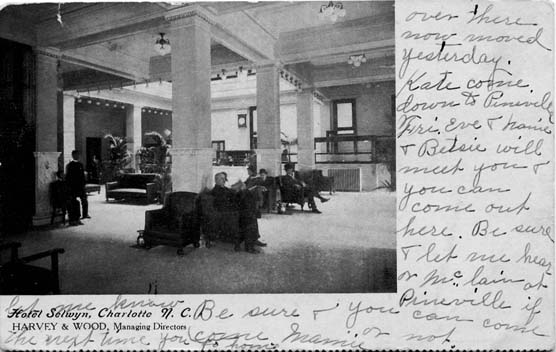 over there
now moved
yesterday.
Kate come
down to Pineville
Fri. Eve & Mamie
& Bessie will
meet you &
you can
come out
here. Be sure
& let me hear
or Mc lain at
Pineville if
you can come
or not.
Hotel Selwyn, Charlotte N. C.
HARVEY & WOOD, Managing Directors
let me know
the next time you come
Be sure &
Mamie